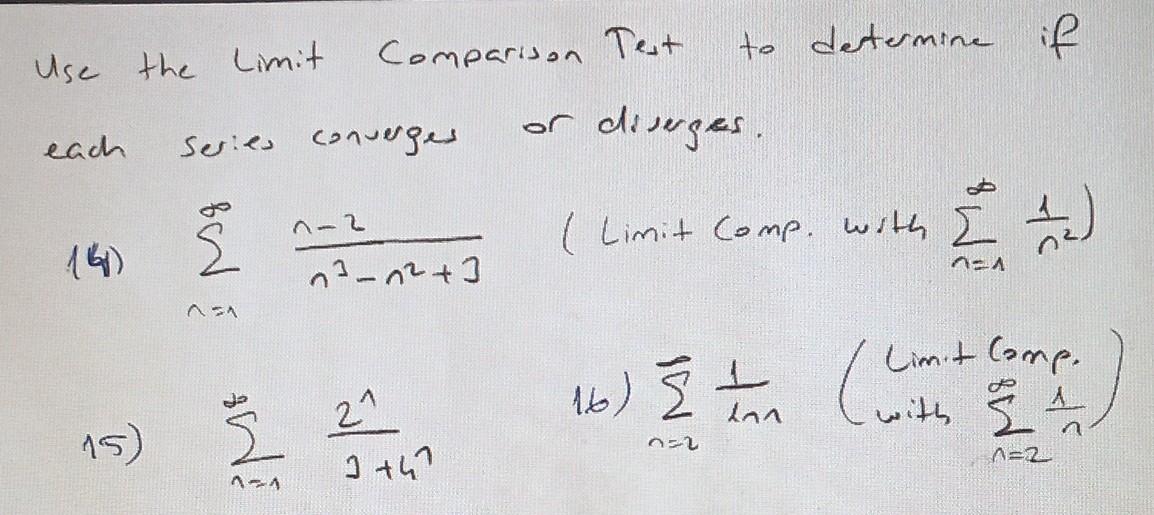 Use the Limit Comparison Test to determine if
each series converges or diverges.
14) ∞ ∑ n=1 n-2 / n³-n²+3 ( Limit Comp. with ∞ ∑ n=1 1/n² )
15) ∞ ∑ n=1 2ⁿ / 3+4ⁿ
16) ∞ ∑ n=2 1 / ln n ( Limit Comp. with ∞ ∑ n=2 1/n )